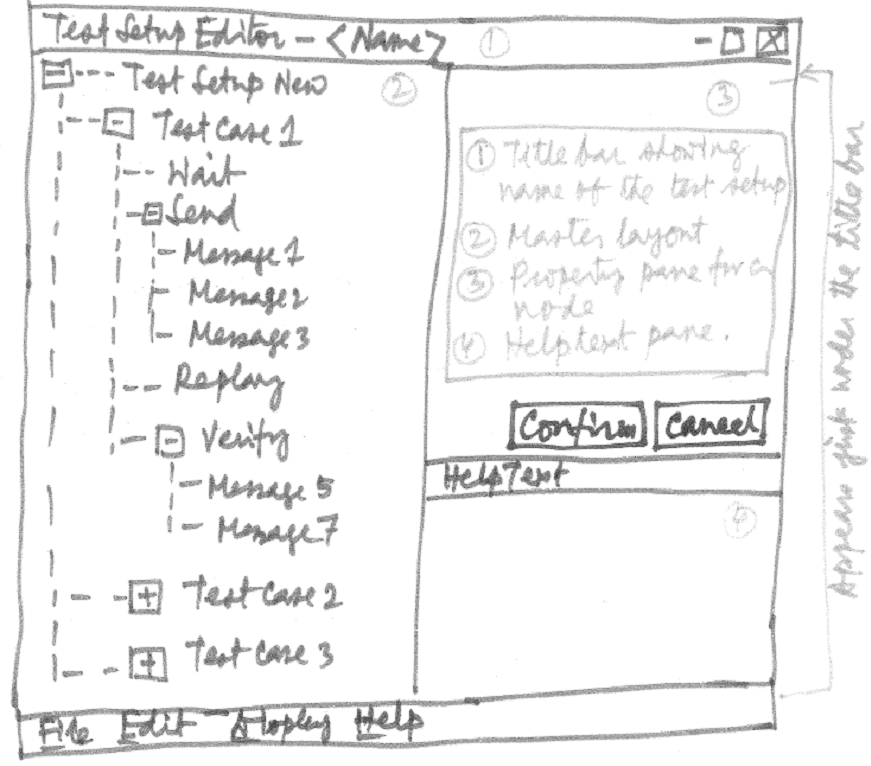 Test Setup Editor - <Name> ①
Test Setup New ②
Test Case 1
Wait
Send
Message 1
Message 2
Message 3
Replay
Verify
Message 5
Message 7
Test Case 2
Test Case 3
③
① Title bar showing
name of the test setup
② Master layout
③ Property pane for a
node
④ Helptext pane.
Confirm Cancel
HelpText
④
File Edit Display Help
Appears just under the title bar